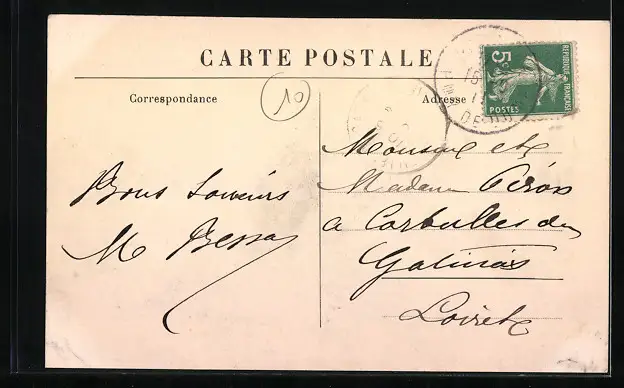 CARTE POSTALE
Correspondance
Adresse
10
5c
REPUBLIQUE FRANÇAISE
POSTES
Bons Souvenirs
M Bessa
Monsieur et
Madame Péron
a Corbeilles du
Gatinais
Loiret